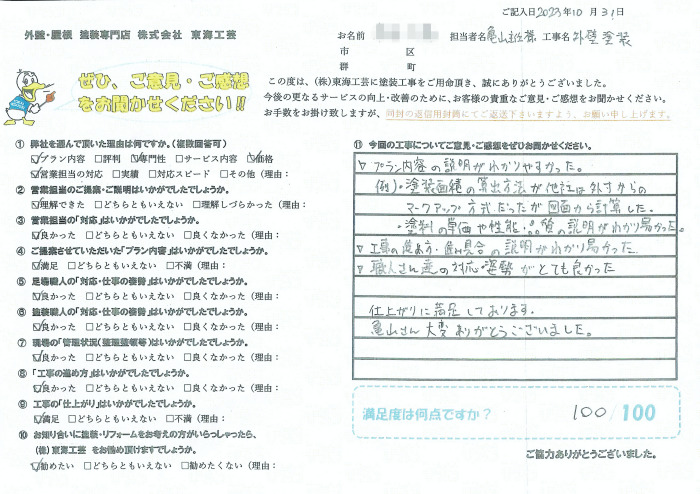 ご記入日2023年10月31日
外壁・屋根 塗装専門店 株式会社 東海工芸
お名前 担当者名 亀山主任様 工事名 外壁塗装
市 区
郡 町
ぜひ、ご意見・ご感想
をお聞かせください!!
この度は、(株)東海工芸に塗装工事をご用命頂き、誠にありがとうございました。
今後の更なるサービスの向上・改善のために、お客様の貴重なご意見・ご感想をお聞かせください。
お手数をお掛け致しますが、同封の返信用封筒にてご返送下さいますよう、お願い申し上げます。
① 弊社を選んで頂いた理由は何ですか。(複数回答可)
☑プラン内容 □評判 ☑専門性 □サービス内容 ☑価格
☑営業担当の対応 □実績 □対応スピード □その他(理由:
② 営業担当のご提案・ご説明はいかがでしたでしょうか。
☑理解できた □どちらともいえない □理解しづらかった(理由:
③ 営業担当の「対応」はいかがでしたでしょうか。
☑良かった □どちらともいえない □良くなかった(理由:
④ ご提案させていただいた「プラン内容」はいかがでしたでしょうか。
☑満足 □どちらともいえない □不満(理由:
⑤ 足場職人の「対応・仕事の姿勢」はいかがでしたでしょうか。
☑良かった □どちらともいえない □良くなかった(理由:
⑥ 塗装職人の「対応・仕事の姿勢」はいかがでしたでしょうか。
☑良かった □どちらともいえない □良くなかった(理由:
⑦ 現場の「管理状況(整理整頓等)」はいかがでしたでしょうか。
☑良かった □どちらともいえない □良くなかった(理由:
⑧ 「工事の進め方」はいかがでしたでしょうか。
☑良かった □どちらともいえない □良くなかった(理由:
⑨ 工事の「仕上がり」はいかがでしたでしょうか。
☑満足 □どちらともいえない □不満(理由:
⑩ お知り合いに塗装・リフォームをお考えの方がいらっしゃったら、
(株)東海工芸 をお勧め頂けますでしょうか。
☑勧めたい □どちらともいえない □勧めたくない(理由:
⑪ 今回の工事についてご意見・ご感想をぜひお聞かせください。
▽プラン内容の説明がわかりやすかった。
例)・塗装面積の算出方法が他社は外寸からの
マークアップ方式だったが図面から計算した.
・塗料の単価や性能・品質の説明がわかり易かった。
▽工事の進め方・進み具合の説明がわかり易かった
▽職人さん達の対応・姿勢がとても良かった
仕上がりに満足しております。
亀山さん大変ありがとうございました。
満足度は何点ですか? 100/100
ご協力ありがとうございました。